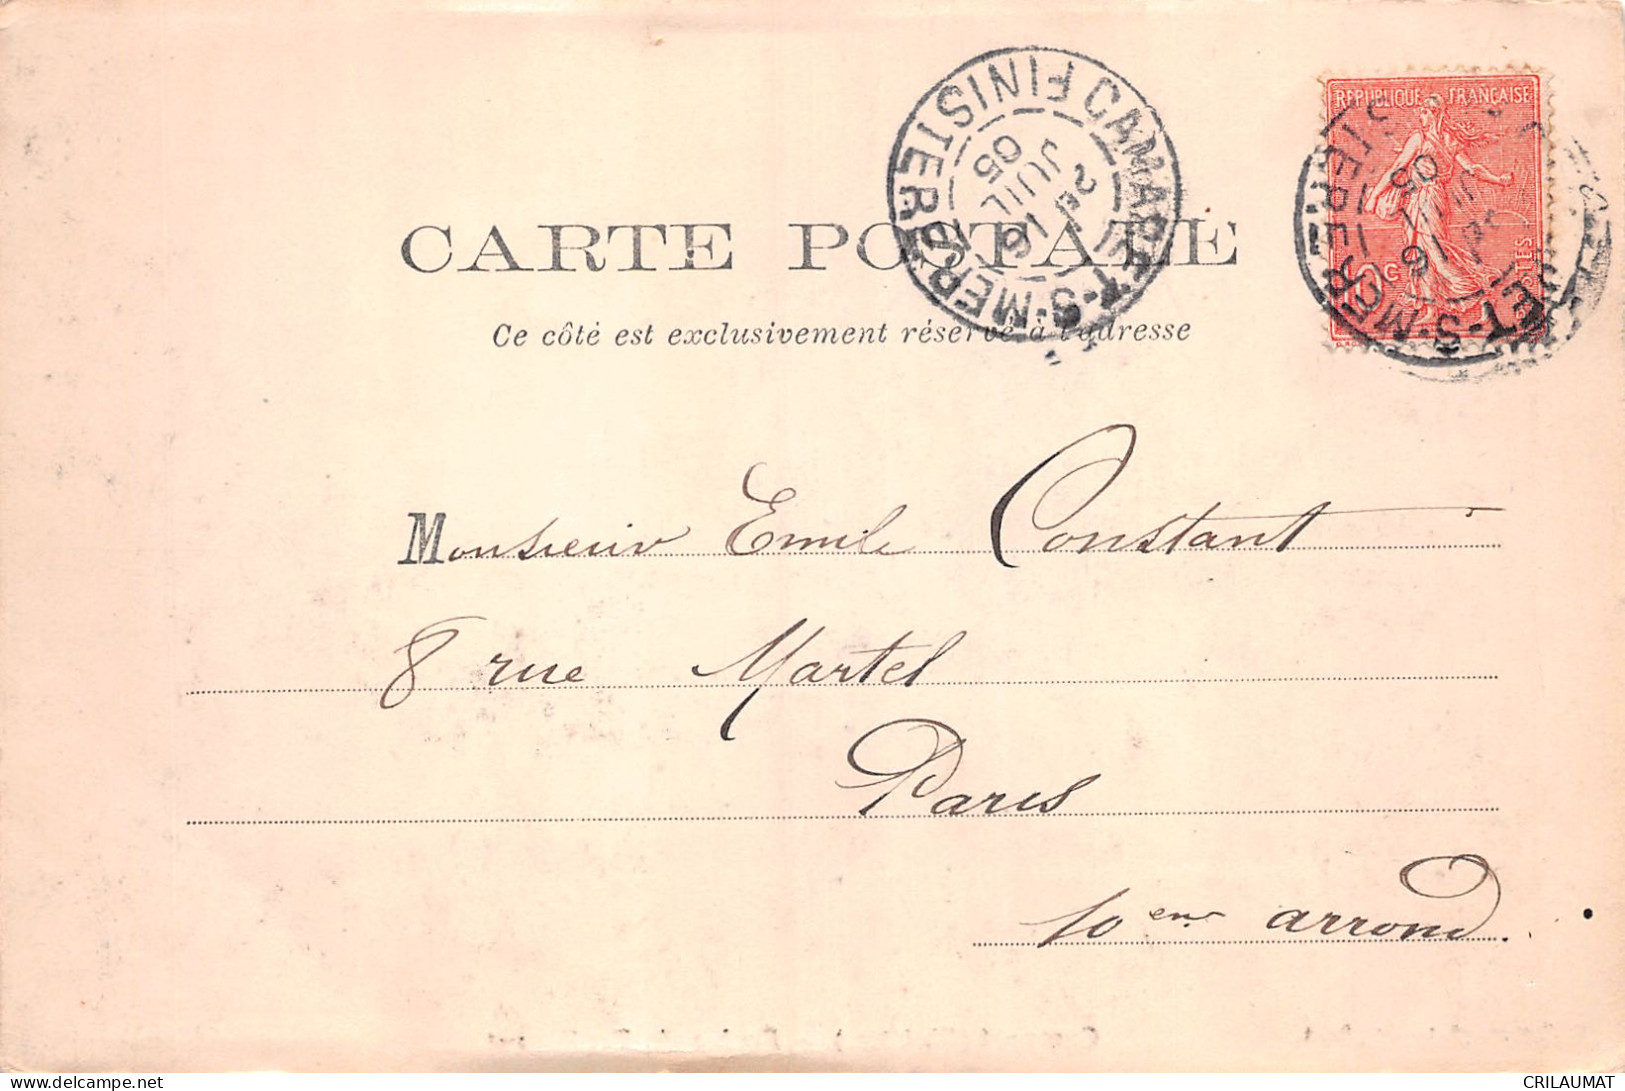 REPUBLIQUE FRANÇAISE
10c
POSTES
CAMARET-S-MER FINISTERE
2E
16
JUIL
05
ET-S-MER
STERE
16
05
CARTE POSTALE
Ce côté est exclusivement réservé à l'adresse
Monsieur Emile Constant
8 rue Martel
Paris
10eme arrond.
www.delcampe.net
CRILAUMAT